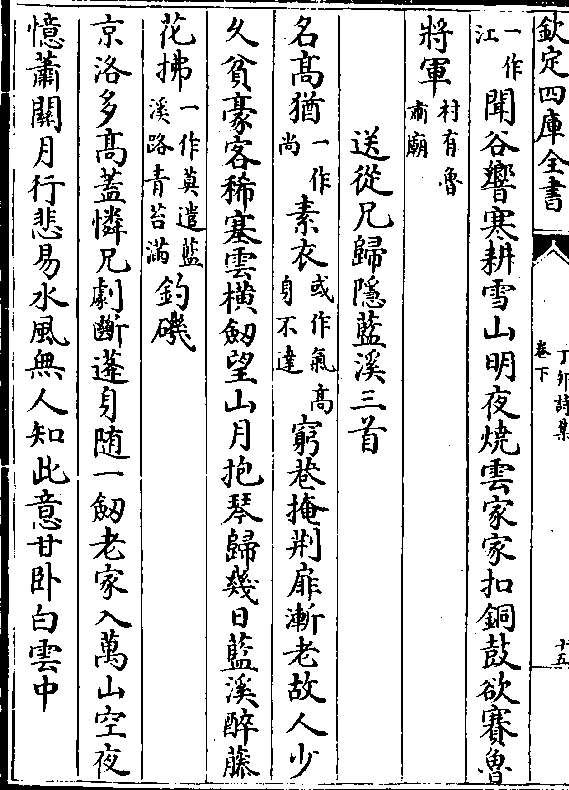 欽定四庫全書
丁卯詩集
卷下
十五
一作江聞谷響寒耕雪山明夜燒雲家家扣銅鼓欲賽魯
將軍村有魯肅廟
送從兄歸隱藍溪三首
名高猶一作尚素衣或作氣高身不達窮巷掩荆扉漸老故人少
久貧豪客稀塞雲橫劒望山月抱琴歸幾日藍溪醉藤
花拂一作莫遣藍溪路青苔滿釣磯
京洛多高蓋憐兄劇斷蓬身随一劒老家入萬山空夜
憶蕭關月行悲易水風無人知此意甘卧白雲中